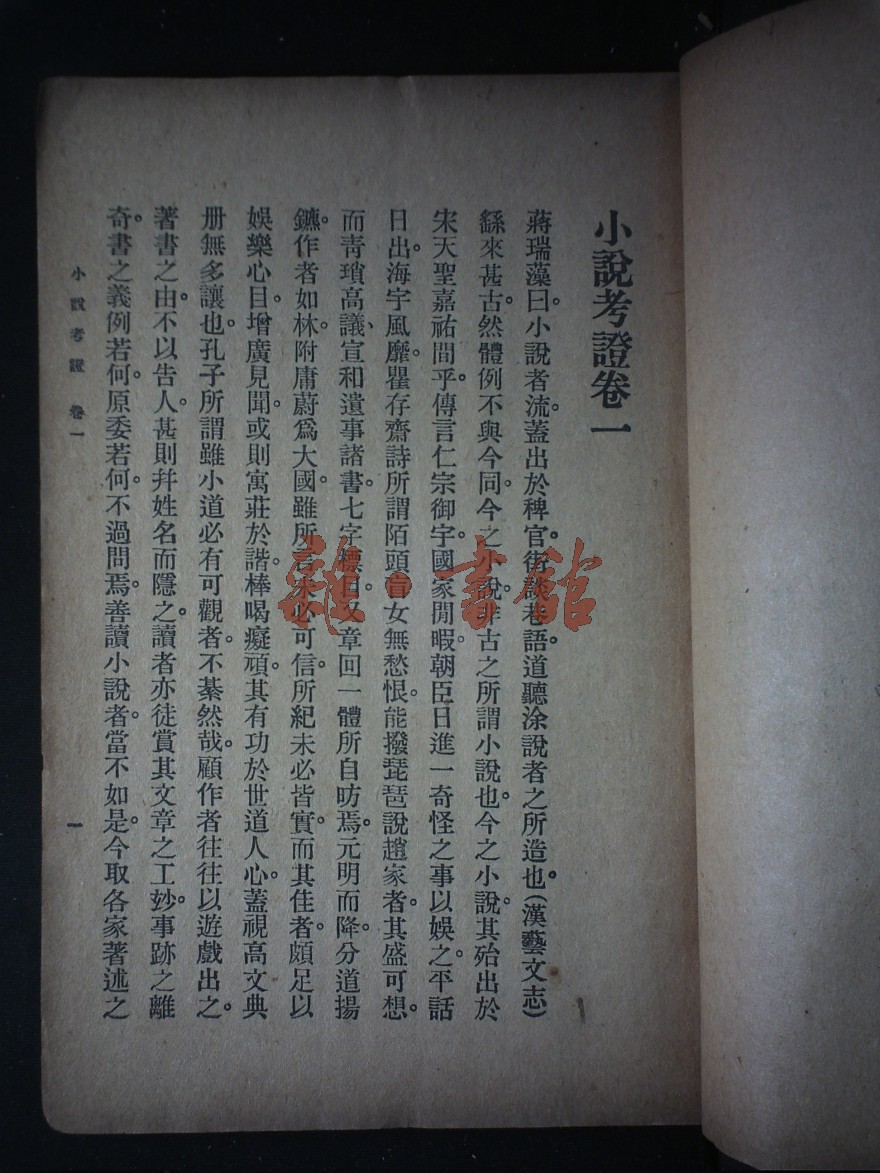 小說考證卷一
蔣瑞藻曰小說者流蓋出於稗官街談巷語道聽涂說者之所造也。(漢藝文志)
繇來甚古。然體例不與今同。今之小說。非古之所謂小說也。今之小說。其殆出於
宋天聖嘉祐間乎。傳言仁宗御宇。國家閒暇。朝臣日進一奇怪之事以娛之。平話
日出。海宇風靡。瞿存齋詩所謂陌頭盲女無愁恨。能撥琵琶說趙家者。其盛可想。
而靑瑣高議、宣和遺事諸書。七字標目。又章回一體所自昉焉。元明而降。分道揚
鑣。作者如林。附庸蔚爲大國。雖所言未必可信。所紀未必皆實。而其佳者。頗足以
娛樂心目。增廣見聞。或則寓莊於諧。棒喝癡頑。其有功於世道人心。蓋視高文典
册無多讓也。孔子所謂雖小道必有可觀者。不綦然哉。顧作者往往以遊戲出之。
著書之由。不以告人。甚則幷姓名而隱之。讀者亦徒賞其文章之工妙。事跡之離
奇。書之義例若何。原委若何。不過問焉。善讀小說者。當不如是。今取各家著述之
小說考證 卷一
一
雜·書館